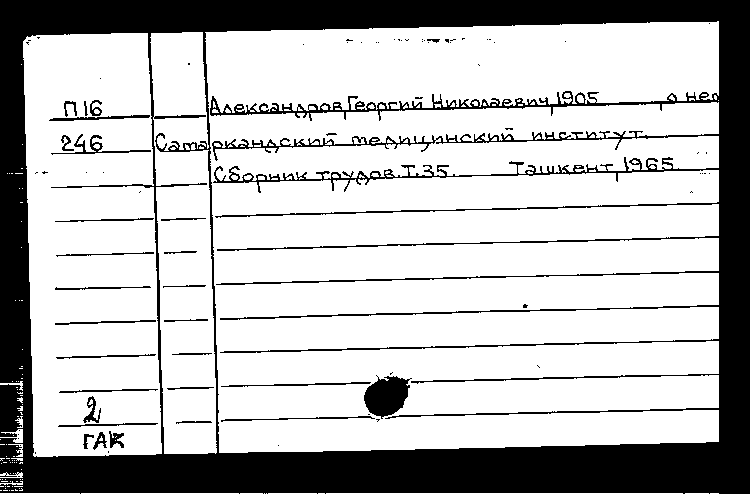 П16 Александров, Георгий Николаевич, 1905 о нем
246 Самаркандский медицинский институт.
Сборник трудов. Т. 35. Ташкент, 1965
2
ГАК